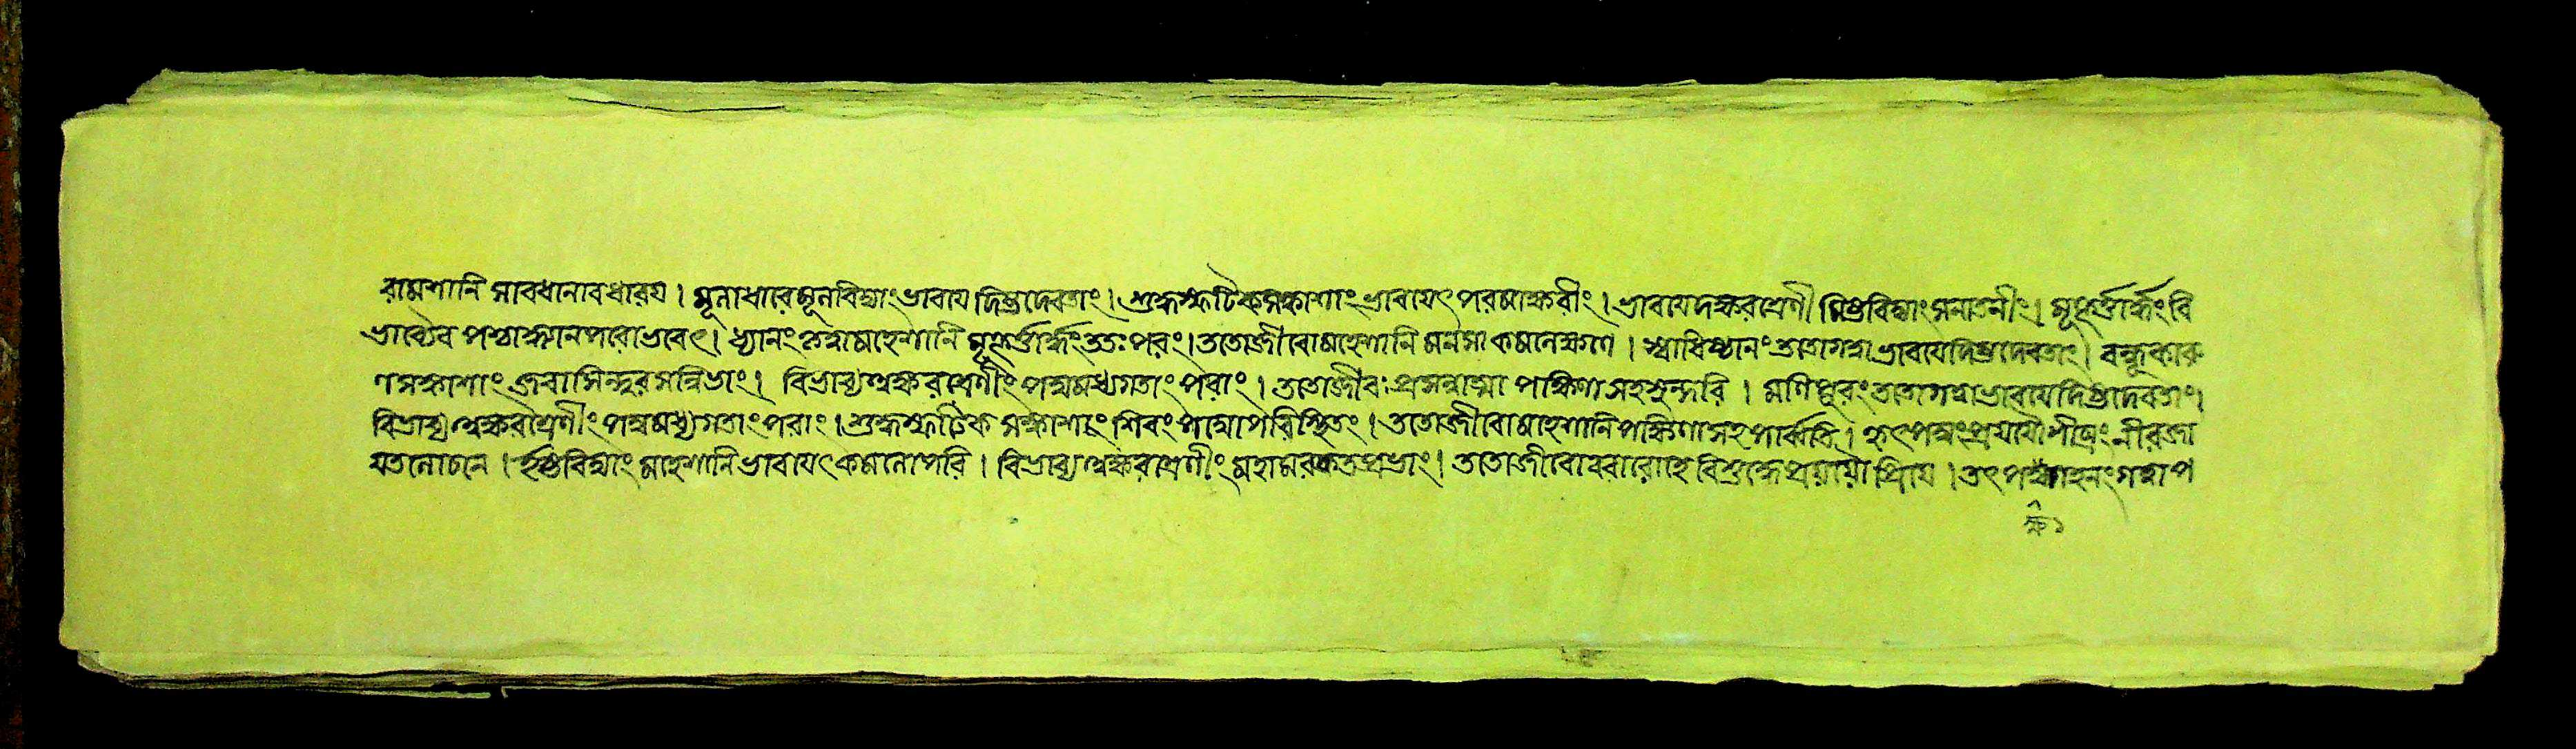 রামেশানি সাবধানাবধারয । মূলাধারেমূলবিদ্যাংভাবযেদিষ্টদেবতাং। শুদ্ধস্ফটিকসঙ্কাশাংভাবযেৎপরমাক্ষরীং। ভাবযেদক্ষরশ্রেণীমিষ্টবিদ্যাংসনাতনীং। মুহূর্ত্তার্দ্ধংবি
ভাব্যৈব পশ্চাদ্ধ্যানপরোভবেৎ। ধ্যানংকৃত্বামহেশানি মুহূর্ত্তার্দ্ধংততঃপরং। ততোজীবোমহেশানি মনসা কমলেক্ষণে । স্বাধিষ্ঠানংততোগত্বাভাবযেদিষ্টদেবতাং। বন্ধূকারু
ণসঙ্কাশাং জবাসিন্দুরসন্নিভাং। বিভাব্যঅক্ষরশ্রেণীংপদ্মমধ্যগতাংপরাং। ততোজীবঃপ্রসন্নাত্মা পক্ষিণাসহসুন্দরি । মণিপুরংততোগত্বাভাবযেদিষ্টদেবতাং।
বিভাব্যঅক্ষরশ্রেণীংপদ্মমধ্যগতাংপরাং। শুদ্ধস্ফটিকসঙ্কাশাংশিবংপদ্মোপরিস্থিতং। ততোজীবোমহেশানিপক্ষিণাসহপার্ব্বতি। হৃৎপদ্মংপ্রযযৌশীঘ্রংনীরজা
যতলোচনে । ইষ্টবিদ্যাং মহেশানিভাবযেৎকমলোপরি । বিভাব্যঅক্ষরশ্রেণীংমহামরকতপ্রভাং। ততোজীবোবরারোহে বিশুদ্ধেপ্রযযৌপ্রিযে । তৎপদ্মগহনংগত্বাপ